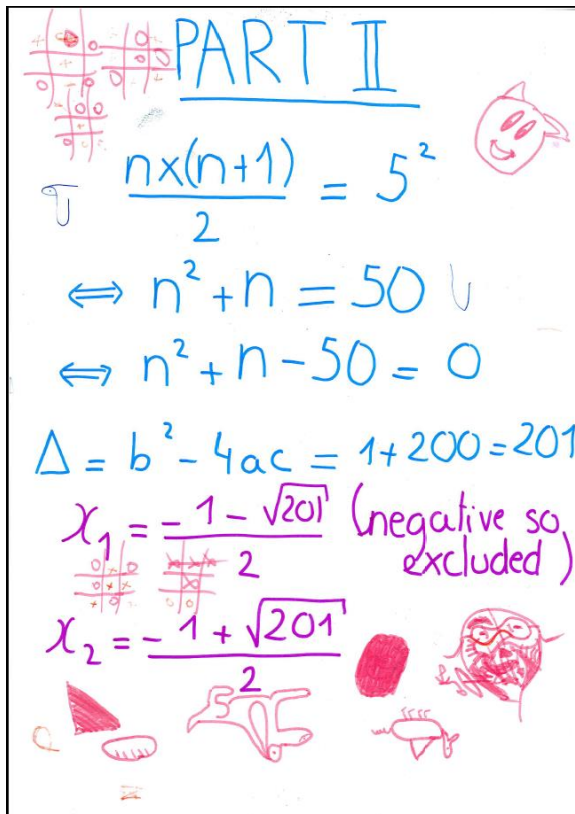 PART II
n×(n+1)/2 = 5²
⇔ n² + n = 50
⇔ n² + n - 50 = 0
Δ = b² - 4ac = 1 + 200 = 201
x₁ = -1 - √201/2 (negative so excluded)
x₂ = -1 + √201/2